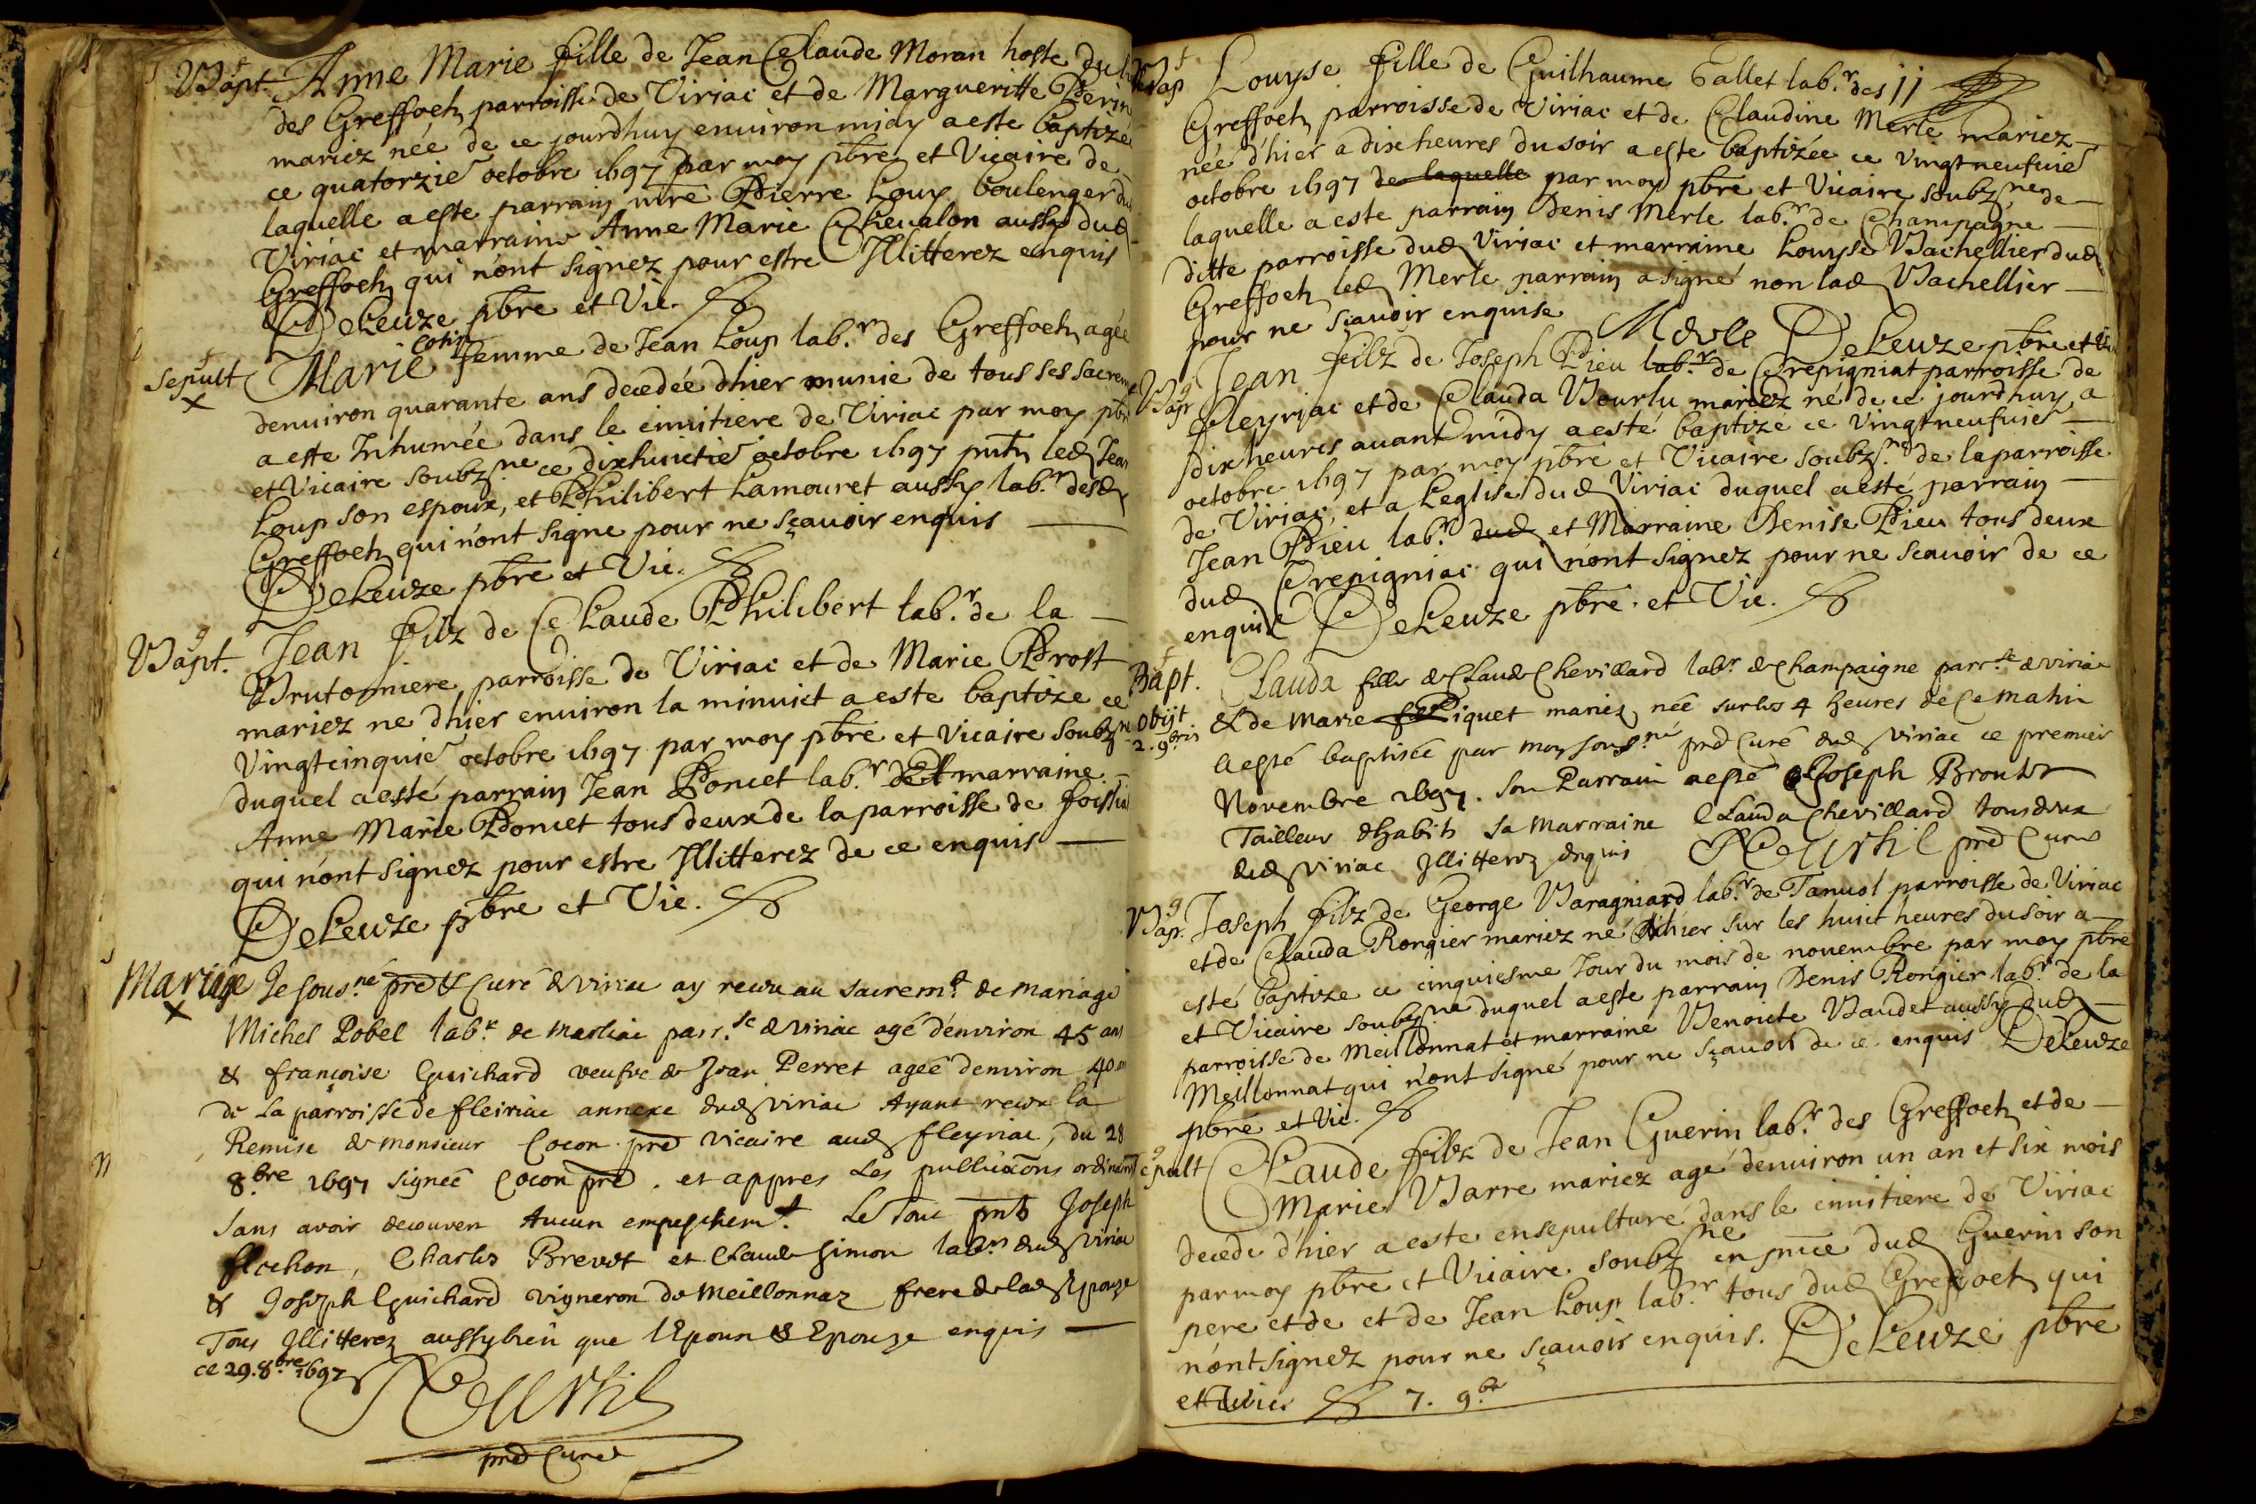 Bapt. Anne Marie fille de Jean Claude Moran hoste du
des Greffoetz parroisse de Viriac et de Margueritte Perin
mariez née de ce jourdhuy environ midy a este baptizée
ce quatorzie octobre 1697 par moy pbre et Vicaire de
laquelle a este parrain mre Pierre Loup boulenger du
Viriac et marraine Anne Marie Chevalon aussy dud
Greffoetz qui n'ont signez pour estre Illitterez enquis
DeLeuze pbre et Vic.
Sepult Marie Cotin femme de Jean Loup lab.r des Greffoetz agée
denviron quarante ans decedée dhier munie de tous ses sacrem
a este Inhumée dans le cimitiere de Viriac par moy pbre
et Vicaire soubz.ne ce dixhuictie octobre 1697 pntz led Jean
Loup son espoux, et Philibert Lamouret aussy lab.r desd
Greffoetz qui n'ont signe pour ne sçavoir enquis
DeLeuze pbre et Vic.
Bapt. Jean filz de Claude Philibert lab.r de la
Brutonniere parroisse de Viriac et de Marie Prost
mariez ne dhier environ la minuict a este baptize ce
Vingtcinquie octobre 1697 par moy pbre et vicaire soubz.ne
duquel a esté parrain Jean Poncet lab.r et marraine
Anne Marie Poncet tous deux de la parroisse de foissia
qui n'ont signez pour estre Illitterez de ce enquis
DeLeuze pbre et Vic.
Mariage Je sous.né pred & Curé de viriac ay receu au sacrem.t de mariage
Michel Pobel lab.r de Marliac parr.se de viriac agé d'environ 45 ans
& françoise Guichard veufve de Jean Perret agée denviron 40
de la parroisse de fleiriac annexe dud viriac Ayant receu la
Remise de monsieur Cocon pred vicaire aud fleyriac, du 28
8.bre 1697 signeé Cocon pred. et appres les publicãons ordinair
sans avoir decouvert Aucun empeschem.t Le tout pnts Joseph
flochon, Charles Brevet et Claude Simon lab.rs dud viriac
& Joseph Guichard vigneron de Meillonnaz frere de lad Epouze
Tous Illitterez aussybien que l'Epoux & Epouze enquis
ce 29. 8.bre 1697
pred Curé
Bap Louyse fille de Guilhaume Tallet lab.r des 11
Greffoetz parroisse de Viriac et de Claudine Merle mariez
née d'hier a dix heures du soir a este baptizée ce vingtneufuie
octobre 1697 de laquelle par moy pbre et Vicaire soubz.ne de
laquelle a este parrain Denis Merle lab.r de Champagne
ditte parroisse dud Viriac et marraine Louyse Bachellier dud
Greffoetz led Merle parrain a signé non lad Bachellier
pour ne sçavoir enquise Merle DeLeuze pbre et Vic
Bapt Jean filz de Joseph Pieu lab.r de Crepigniat parroisse de
fleyriac et de Clauda Bourlu mariez né de ce jourdhuy a
dix heures avant midy a este baptizé ce vingtneufuie
octobre 1697 par moy pbre et Vicaire soubz.ne de la parroisse
de Viriac, et a Leglise dud Viriac duquel a esté parrain
Jean Pieu lab.r dud et Marraine Denise Pieu tous deux
dud Crepigniac qui n'ont signez pour ne scavoir de ce
enquis DeLeuze pbre. et Vic.
Bapt. Clauda fille de Claude Chevillard lab.r de Champaigne parr.se de viriac
obijt & de Marie Piquet mariez née sur les 4 heures de ce matin
2. 9bris a esté baptisée par moy sous.né pred Curé dud viriac ce premier
Novembre 1697. son Parrain a esté Joseph Broutet
Tailleur dhabits sa marraine Clauda Chevillard tous deux
dud viriac Illitterez enquis pred Curé
Bap. Joseph filz de George Baragniard lab.r de Tanvol parroisse de Viriac
et de Clauda Rongier mariez né d'hier sur les huict heures du soir a
esté baptize ce cinquiesme Jour du mois de novembre par moy pbre
et Vicaire soubz.ne duquel a este parrain Denis Rongier lab.r de la
parroisse de Meillonnat et marraine Benoicte Baudet aussy dud
Meillonnat qui n'ont signé pour ne sçavoir de ce enquis DeLeuze
pbre et Vic.
Sepult Claude filz de Jean Guerin lab.r des Greffoetz et de
Marie Barre mariez agé denviron un an et six mois
decede d'hier a este ensepulturé dans le cimitiere de Viriac
par moy pbre et Vicaire. soubz.ne en pnce dud Guerin son
pere et de et de Jean Loup lab.r tous dud Greffoetz qui
n'ont signez pour ne sçavoir enquis. DeLeuze pbre
et Vic 7. 9.bre